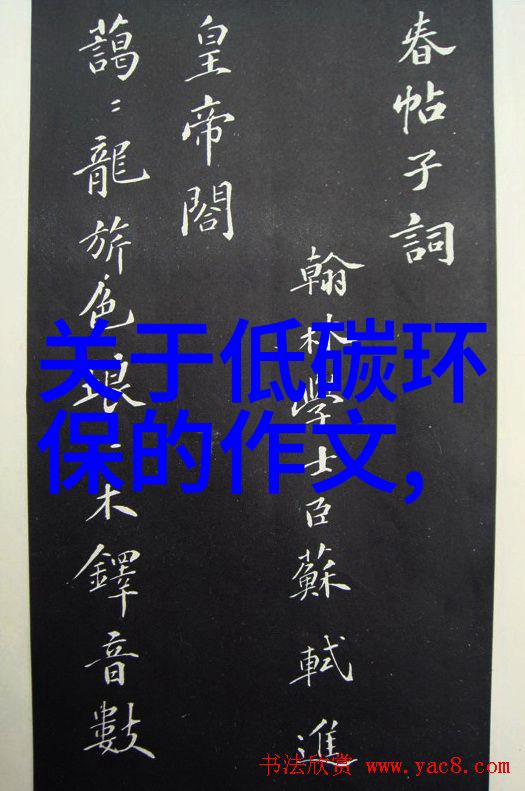 春帖子詞
翰林學士臣蘇軾進
皇帝閤
藹〻龍旂色琅〻木鐸音數
关于低碳环
保的作文,
书法欣赏 www.yac8.com